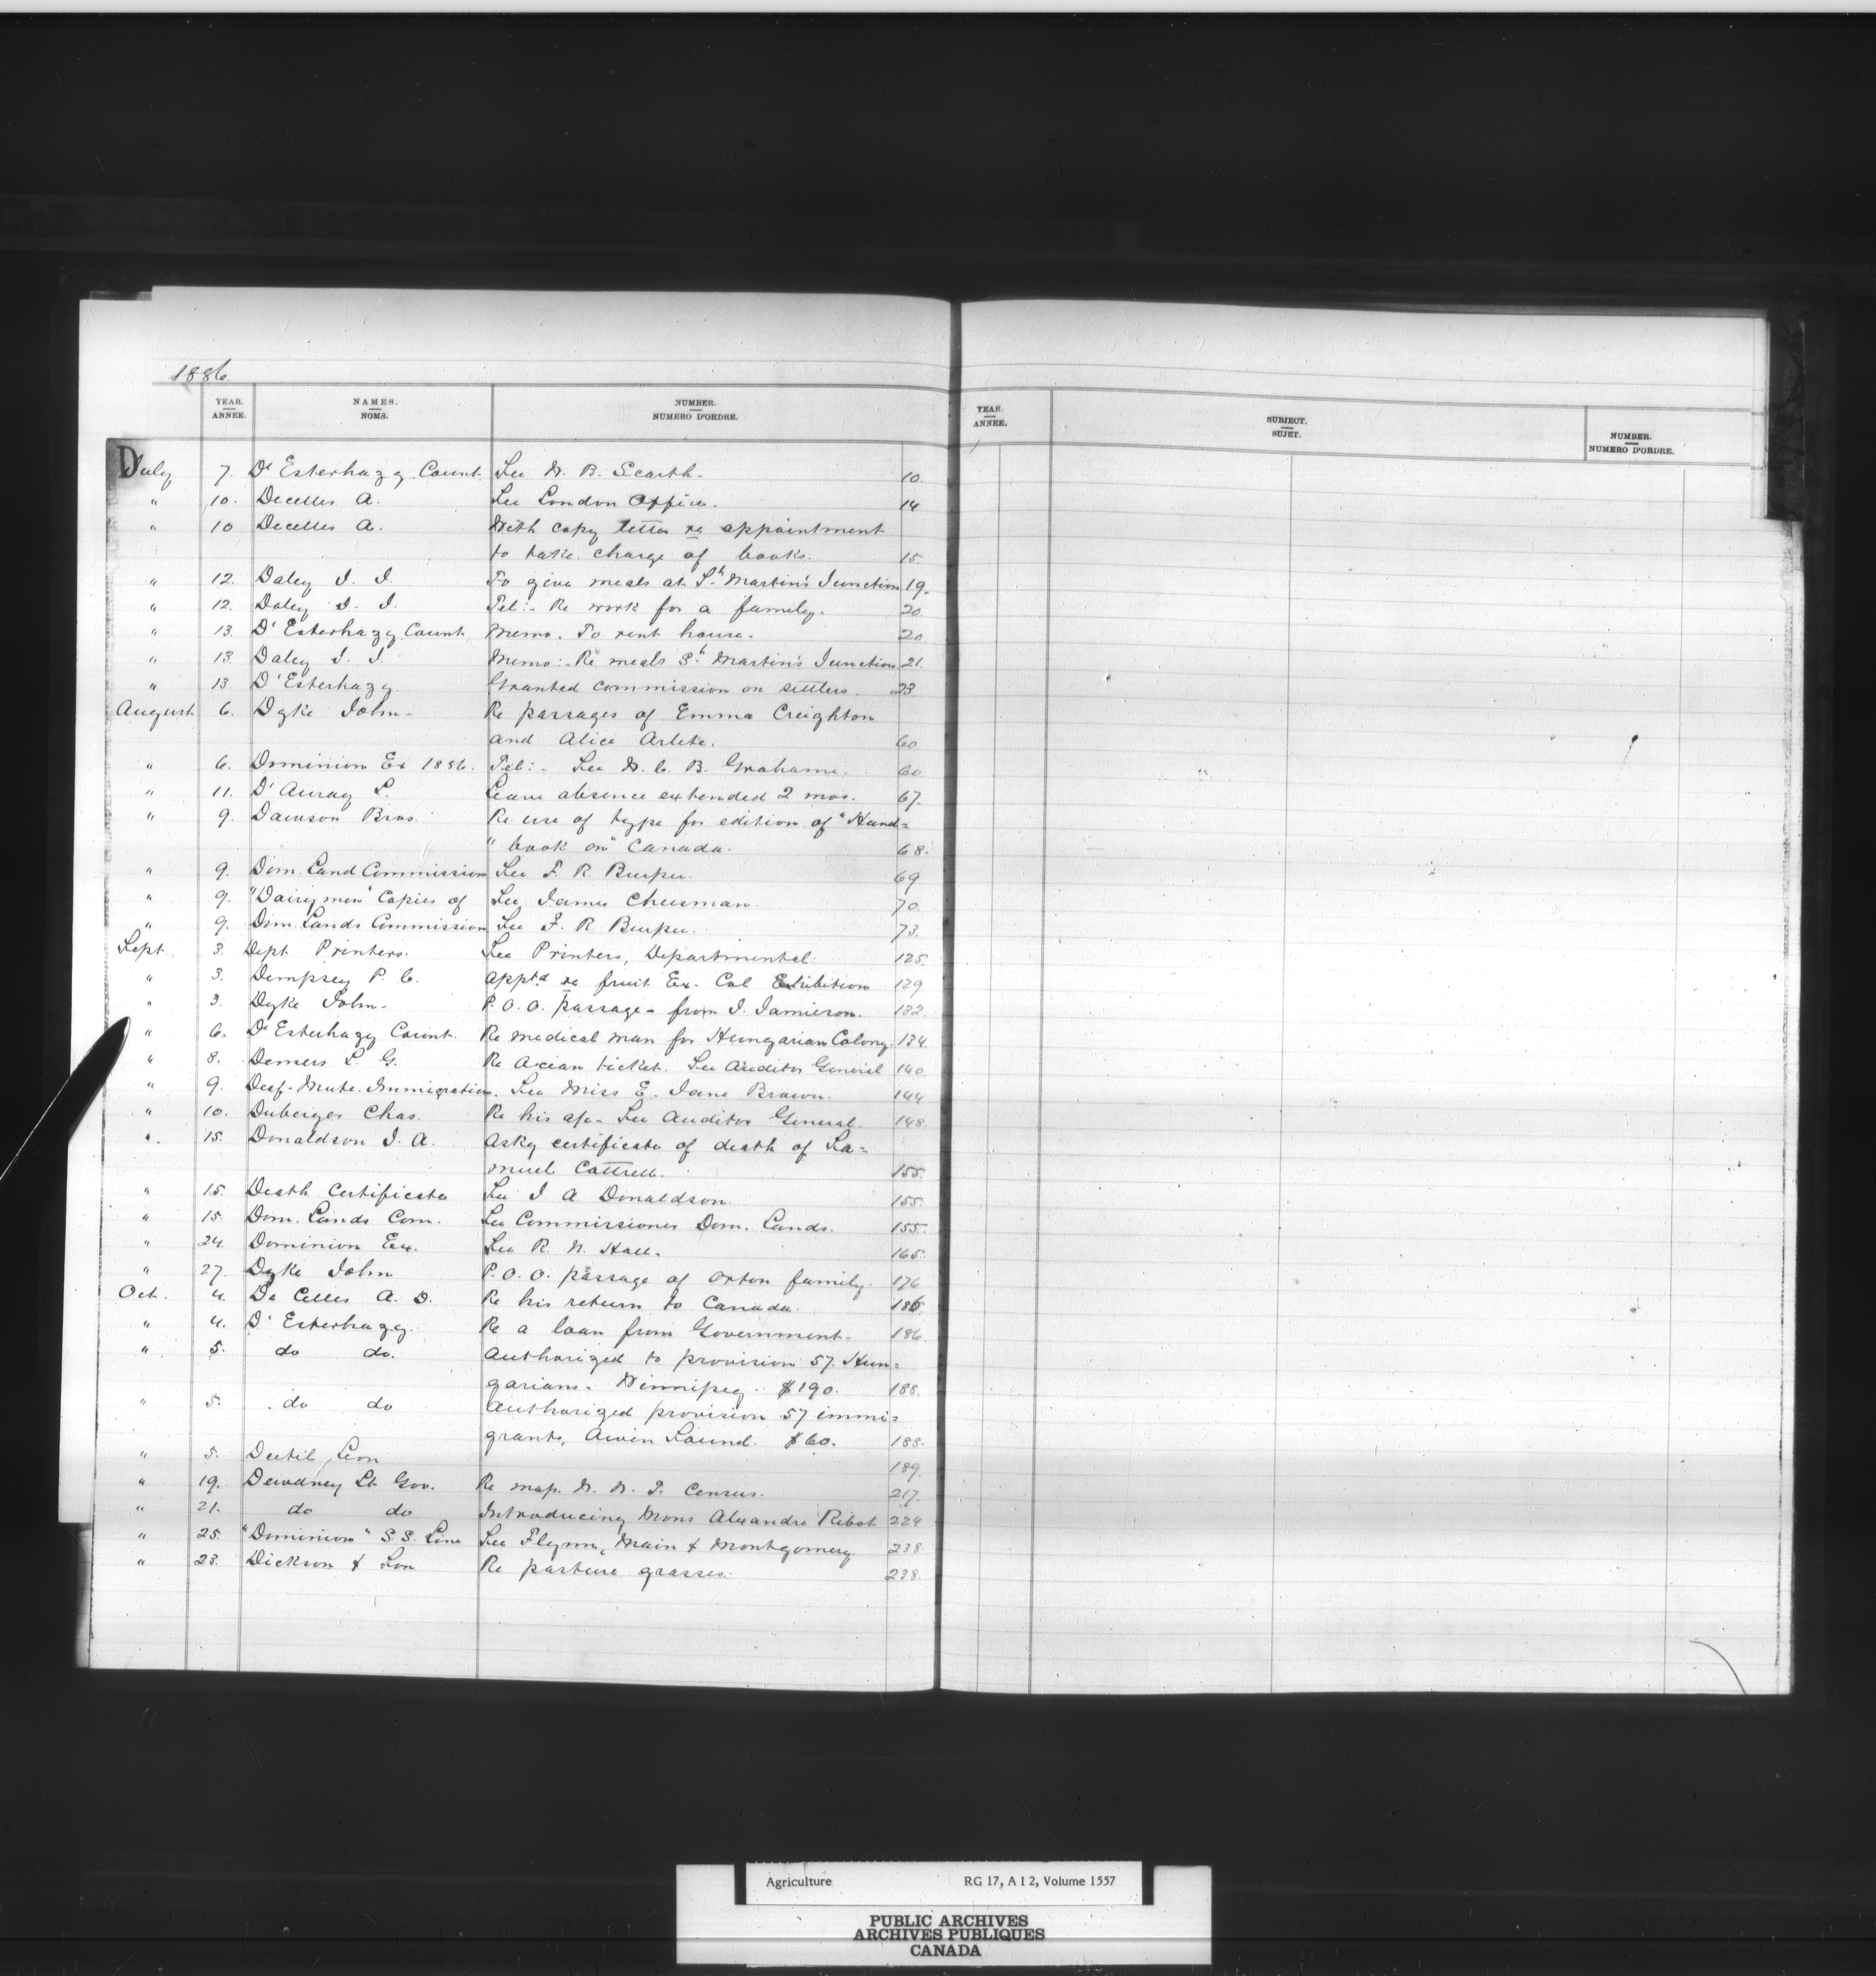 1886.
YEAR. NAMES. NUMBER. YEAR. SUBJECT. NUMBER.
ANNÉE. NOMS. NUMERO D'ORDRE. ANNÉE. SUJET. NUMERO D'ORDRE.
D
July 7. D'Esterhazy Count. See W. B. Scarth. 10
" 10. Decelles A. See London Office. 14
" 10 Decelles A. With copy letter re appointment
to take charge of books. 15
" 12. Daley J. J. To give meals at St Martin's Junction 19.
" 12. Daley J. J. Tel:- Re work for a family. 20.
" 13. D'Esterhazy Count. Memo. To rent house. 20
" 13. Daley J. J. Memo:- Re meals St Martin's Junction 21.
" 13 D'Esterhazy Granted commission on settlers. 23.
August 6. Dyke John. Re passages of Emma Creighton
and Alice Arlete. 60
" 6. Dominion Ex 1886. Tel:- See W. C. B. Grahame. 60
" 11. D'Auray L. Leave absence extended 2 mos. 67.
" 9. Dawson Bros. Re use of type for edition of "Hand=
" book on" Canada. 68.
" 9. Dom. Land Commission See F. R. Burpee. 69
" 9. "Dairymen" Copies of See James Cheesman. 70.
" 9. Dom. Lands Commission See F. R. Burpee. 73.
Sept. 3. Dept. Printers. See Printers, Departmental. 125.
" 3. Dempsey P. C. Apptd re fruit Ex. Col Exhibition 129
" 3. Dyke John. P.O.O. passage - from J. Jamieson. 132.
" 6. D'Esterhazy Count. Re medical man for Hungarian Colony. 134.
" 8. Demers L. G. Re ticket. See Auditor General 140.
" 9. Deaf-Mute Immigration. See Miss E. Jane Brown. 144
" 10. Duberger Chas. Re his a/c - See Auditor General. 148.
" 15. Donaldson J. A. Askg certificate of death of Sa=
muel Cattrell. 155.
" 15. Death Certificate See J A Donaldson. 155.
" 15. Dom. Lands Com. See Commissioner Dom. Lands. 155.
" 24. Dominion Ex. See R. N. Hall. 165.
" 27. Dyke John P.O.O. passage of Orton family. 176
Oct. 4. De Celles A. D. Re his return to Canada. 186
" 4. D'Esterhazy Re a loan from Government. 186.
" 5. do do. Authorized to provision 57. Hun=
garians. Winnipeg. $190. 188.
" 5. do do Authorized provision 57 immi=
grants, Owen Sound. $60. 188.
" 5. Leon 189.
" 19. Dewdney Lt. Gov. Re map. N. W. T. Census. 217.
" 21. do do Introducing Mons Alexandre Ribot 224
" 25. "Dominion" S.S. Line See Flynn, Main & Montgomery. 238
" 23. Dickson & Son Re pasture grasses. 238.
Agriculture RG 17, A I 2, Volume 1557
PUBLIC ARCHIVES
ARCHIVES PUBLIQUES
CANADA